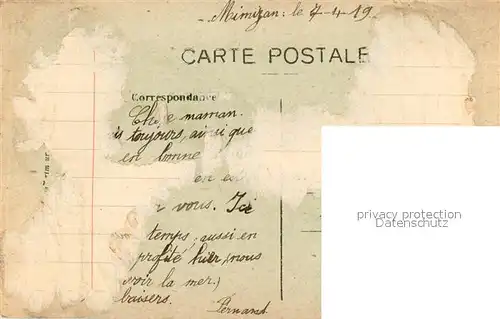 Mimizan: le 7-4-19
CARTE POSTALE
Correspondance
maman.
toujours, ainsi que
en bonne
en
vous. Ici
temps, aussi en
profité hier, nous
voir la mer.)
baisers.
Bernard.
privacy protection
Datenschutz